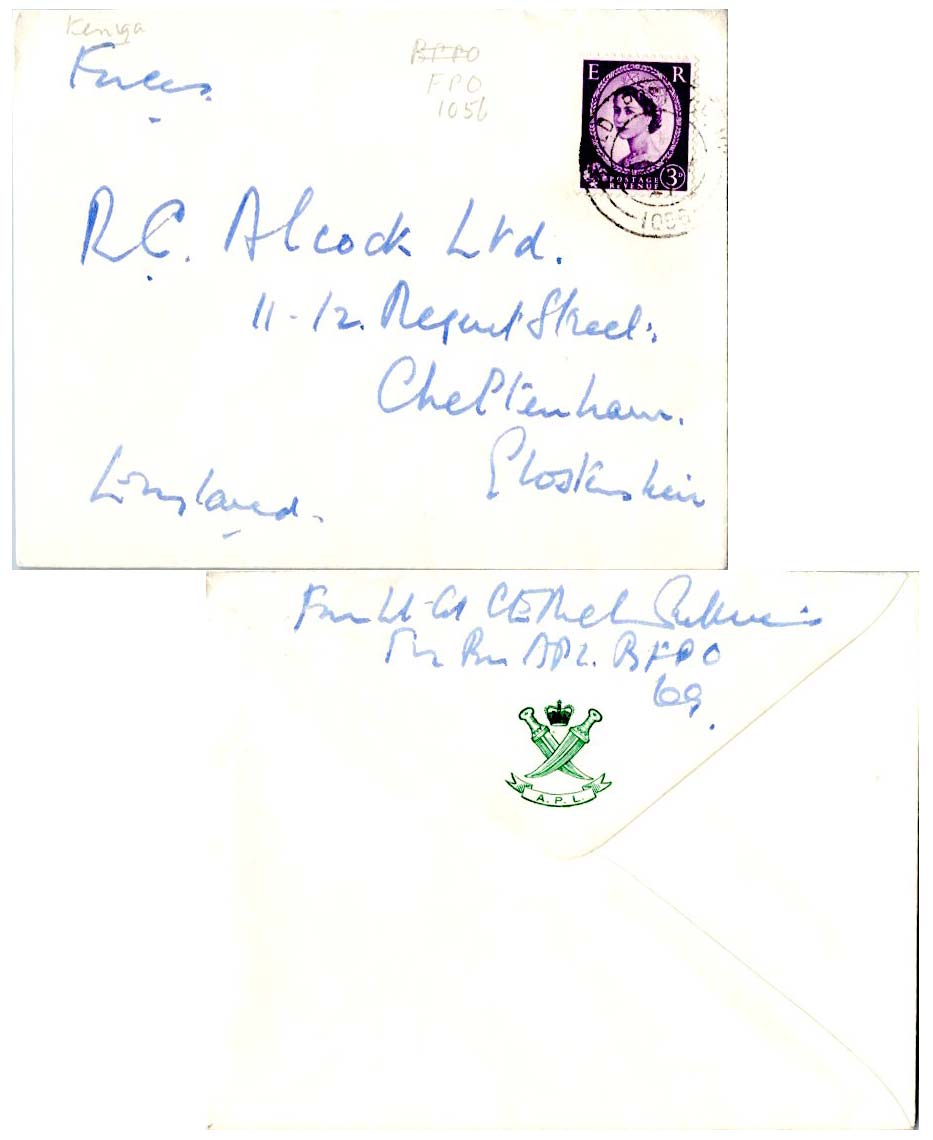 Kenya
Forces.
BFPO
FPO
1056
E R
POSTAGE
REVENUE 3D
1056
R.C. Alcock Ltd.
11-12. Regent Street.
Cheltenham.
England.
From Lt-Col C E
Bn APL. BFPO
69.
A.P.L.